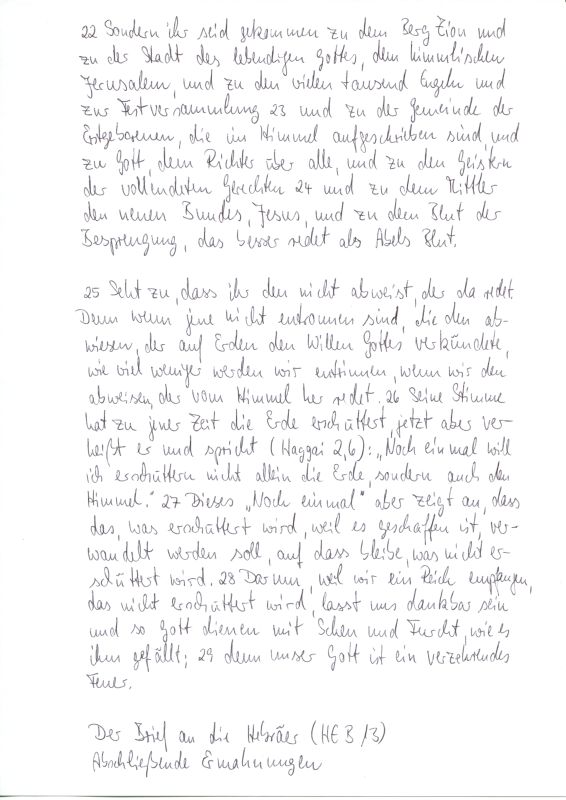 22 Sondern ihr seid gekommen zu dem Berg Zion und
zu der Stadt des lebendigen Gottes, dem himmlischen
Jerusalem, und zu den vielen tausend Engeln und
zur Festversammlung 23 und zu der Gemeinde der
Erstgeborenen, die im Himmel aufgeschrieben sind, und
zu Gott, dem Richter über alle, und zu den Geistern
der vollendeten Gerechten 24 und zu dem Mittler
den neuen Bundes, Jesus, und zu dem Blut der
Besprengung, das besser redet als Abels Blut.
25 Seht zu, dass ihr den nicht abweist, der da redet.
Denn wenn jene nicht entronnen sind, die den ab-
wiesen, der auf Erden den Willen Gottes verkündete,
wie viel weniger werden wir entrinnen, wenn wir den
abweisen, der vom Himmel her redet. 26 Seine Stimme
hat zu jener Zeit die Erde erschüttert, jetzt aber ver-
heißt er und spricht (Haggai 2,6): „Noch einmal will
ich erschüttern nicht allein die Erde, sondern auch den
Himmel." 27 Dieses „Noch einmal" aber zeigt an, dass
das, was erschüttert wird, weil es geschaffen ist, ver-
wandelt werden soll, auf dass bleibe, was nicht er-
schüttert wird. 28 Darum, weil wir ein Reich empfangen,
das nicht erschüttert wird, lasst uns dankbar sein
und so Gott dienen mit Scheu und Furcht, wie es
ihm gefällt; 29 denn unser Gott ist ein verzehrendes
Feuer.
Der Brief an die Hebräer (HEB 13)
Abschließende Ermahnungen